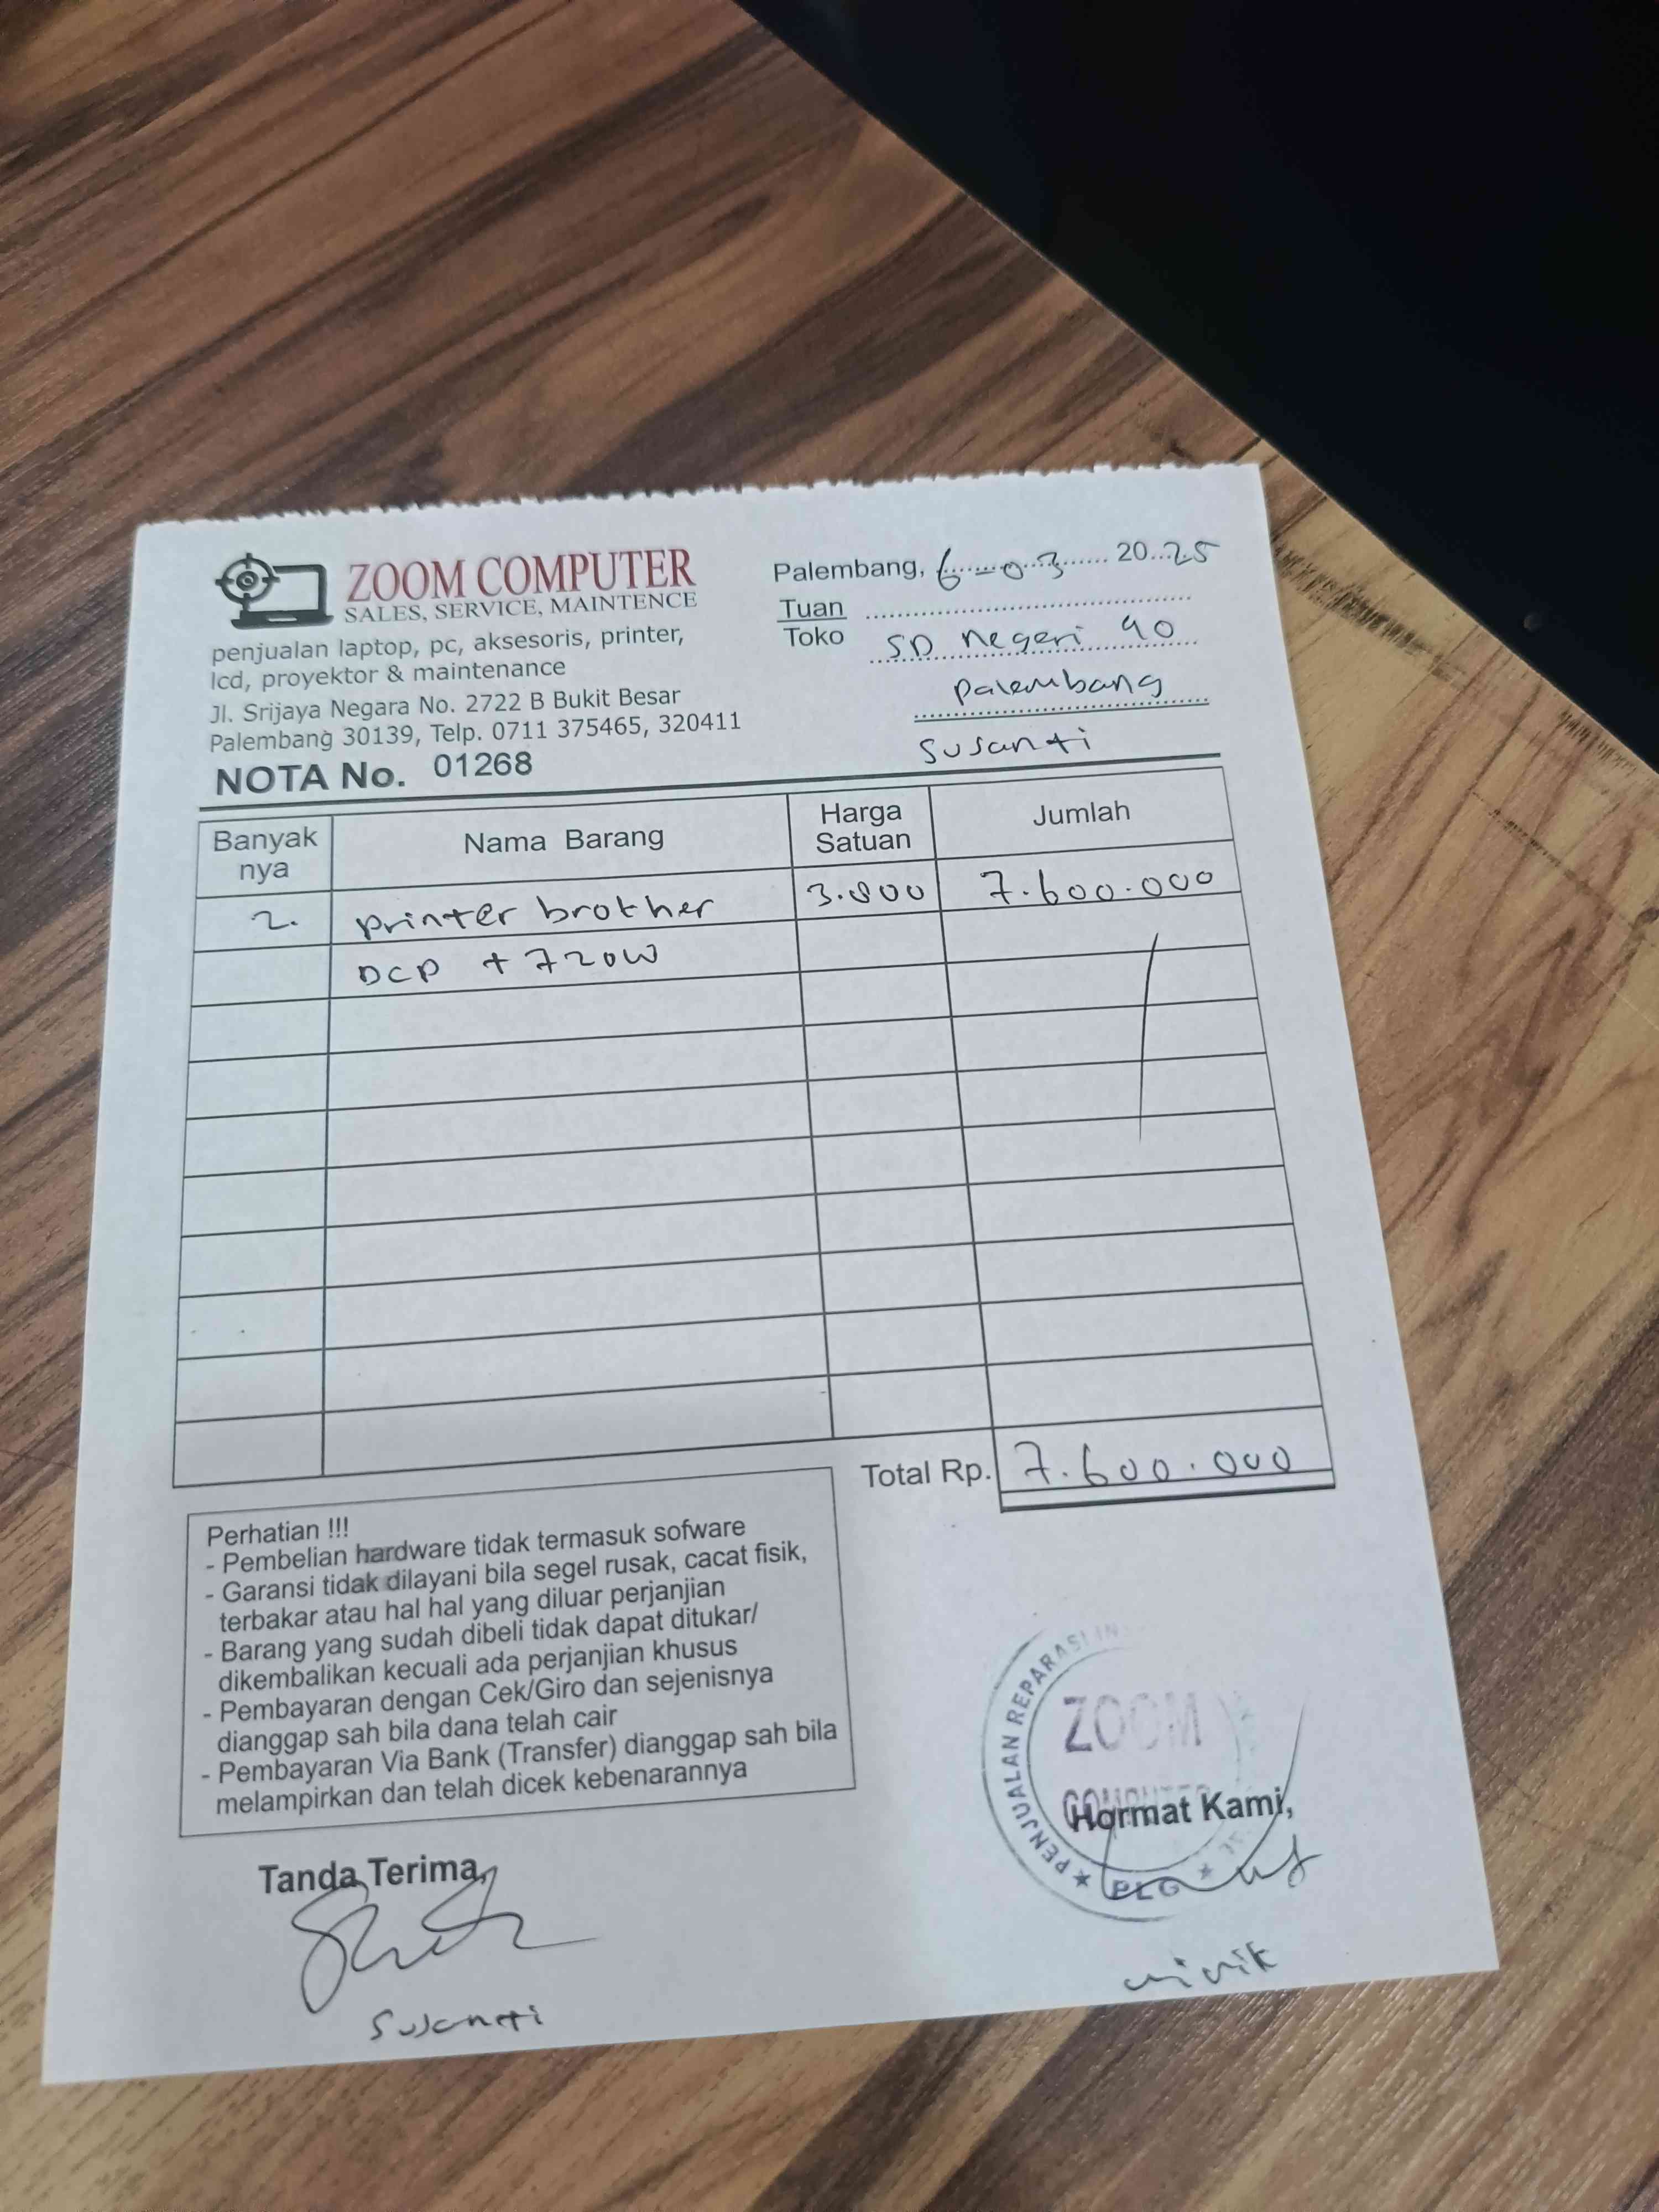 ZOOM COMPUTER
SALES, SERVICE, MAINTENCE
penjualan laptop, pc, aksesoris, printer,
lcd, proyektor & maintenance
Jl. Srijaya Negara No. 2722 B Bukit Besar
Palembang 30139, Telp. 0711 375465, 320411
NOTA No. 01268
Palembang, 6-03 2025
Tuan
Toko SD Negeri 90
Palembang
Susanti
Banyak nya Nama Barang Harga Satuan Jumlah
2. printer brother 3.800 7.600.000
DCP t720W
Total Rp. 7.600.000
Perhatian !!!
- Pembelian hardware tidak termasuk sofware
- Garansi tidak dilayani bila segel rusak, cacat fisik,
terbakar atau hal hal yang diluar perjanjian
- Barang yang sudah dibeli tidak dapat ditukar/
dikembalikan kecuali ada perjanjian khusus
- Pembayaran dengan Cek/Giro dan sejenisnya
dianggap sah bila dana telah cair
- Pembayaran Via Bank (Transfer) dianggap sah bila
melampirkan dan telah dicek kebenarannya
PENJUALAN REPARASI
ZOOM
COMPUTER
PLG
Hormat Kami,
Tanda Terima,
Susanti